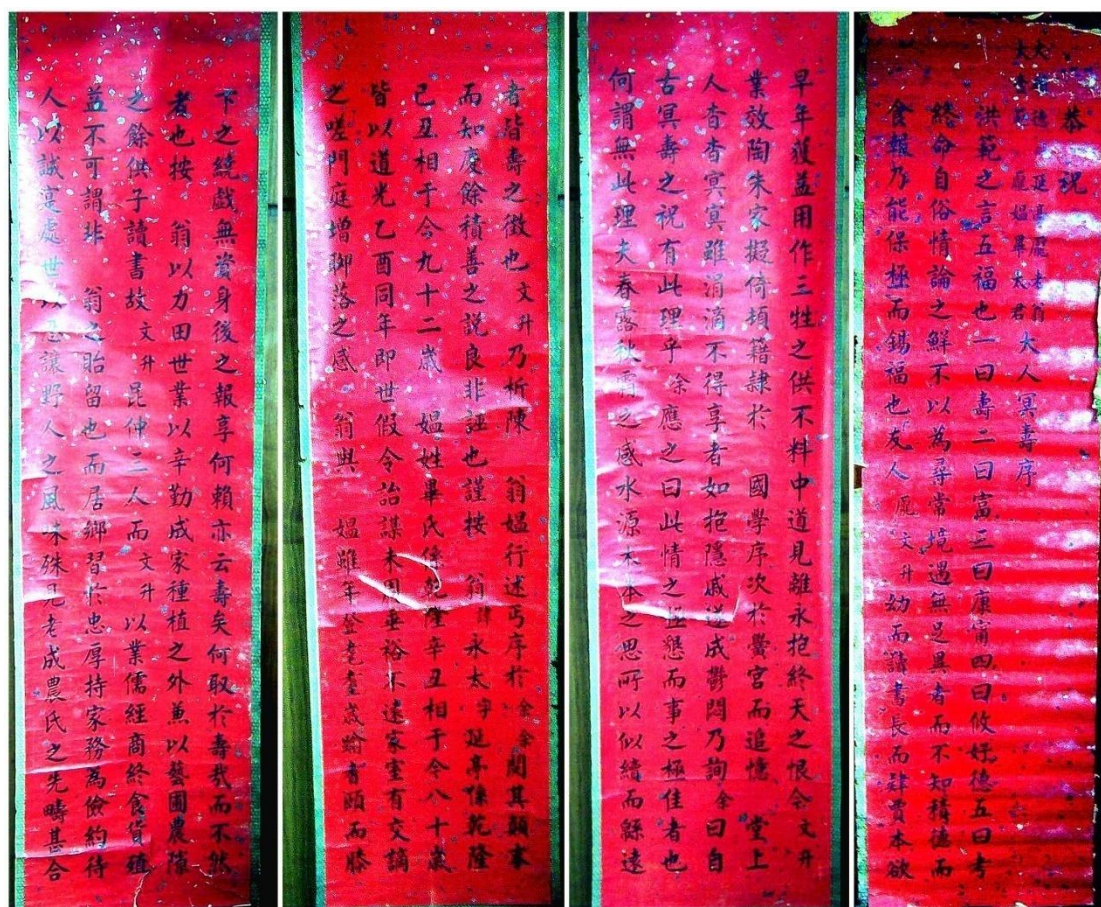 恭祝
大耆德延亭龎老翁
大壽 龎媼畢太君
大人冥壽序
洪範之言五福也一曰壽二曰富三曰康甯四曰攸好德五曰考
終命自俗情論之鮮不以為尋常境遇無足異者而不知積德而
食報乃能保極而錫福也友人 龎文升 幼而讀書長而肆賈本欲
早年獲益用作三牲之供不料中道見離永抱終天之恨今文升
業效陶朱家擬倚頓籍隸於 國學序次於黌宮而追憶 堂上
人杳杳冥冥雖涓滴不得享者如抱隱戚遂成鬱悶乃詢余曰自
古冥壽之祝有此理乎余應之曰此情之極懇而事之極佳者也
何謂無此理夫春露秋霜之感水源木本之思所以似續而緜遠
者皆壽之徵也文升乃析陳 翁媼行述丐序於余余閱其顛末
而知慶餘積善之說良非誣也謹按 翁諱永太字延亭係乾隆
己丑相于今九十二歲 媼姓畢氏係乾隆辛丑相于今八十歲
皆以道光乙酉同年即世假令詒謀未周垂裕不遠家室有交謫
之嗟門庭增聊落之感 翁與 媼雖年登耄耋歲踰耆頤而膝
下之繞戲無資身後之報享何賴亦云壽矣何取於壽哉而不然
者也按 翁以力田世業以辛勤成家種植之外兼以藝圃農隙
之餘供子讀書故文升昆仲三人而文升以業儒經商終食貨殖
益不可謂非 翁之貽留也而居鄉習於忠厚持家務為儉約待
人以誠寔處世以忍讓野人之風味殊見老成農氏之先疇甚合